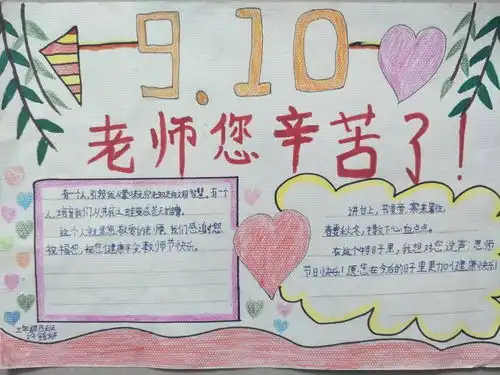 9.10
老师您辛苦了！
有一个人,引领我从懵懂无知走向文明智慧。有一个
人,培育我们从井底之蛙变成苍天的雄鹰。
这个人就是您,敬爱的老师,我们感谢您,
祝福您,祝您健康平安教师节快乐。
讲台上,书桌旁,寒来暑往,
春夏秋冬,撒下心血点点。
在这个节日子里,我想对您说声:恩师
节日快乐!愿您在今后的日子里更加健康快乐!
三年级